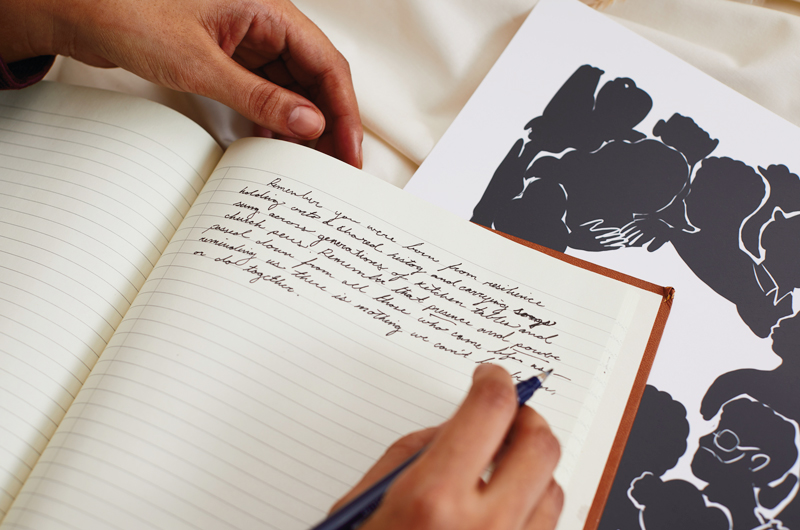 Remember you were born from resilience
holding onto a shared history and carrying songs
sung across generations of kitchen tables and
church pews. Remember that presence and power
passed down from all those who came
reminding us there is nothing we can't
or do together.